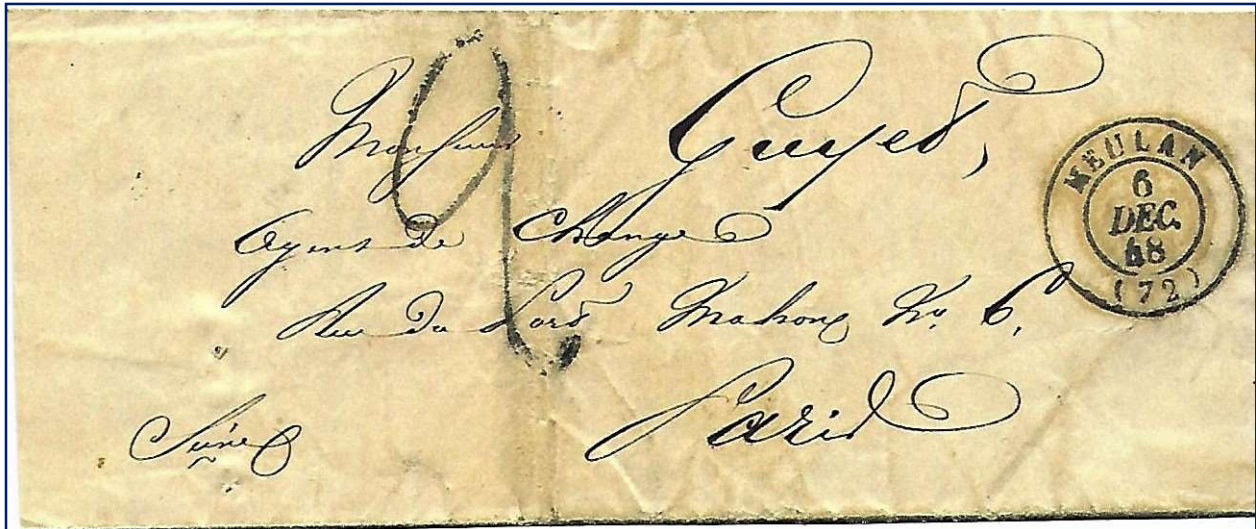 Monsieur Guyet,
Agent de Change
Rue du Port Mahon, No. 6,
Paris
Seine
2
MEULAN
6
DEC.
48
(72)